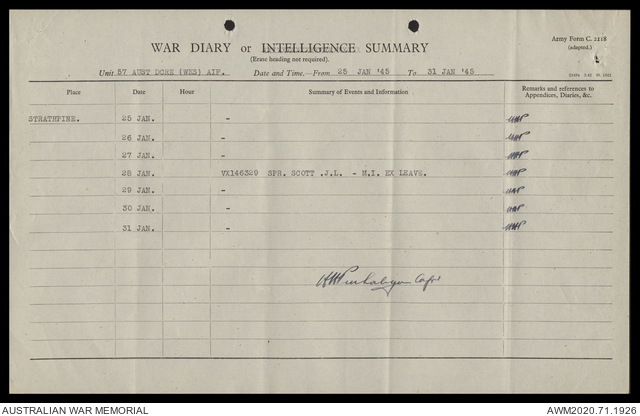 Army Form C. 2118
(adapted.)
WAR DIARY or INTELLIGENCE SUMMARY
(Erase heading not required).
Unit 57 AUST DCRE (WKS) AIF. Date and Time.—From 25 JAN '45 To 31 JAN '45
Place Date Hour Summary of Events and Information Remarks and references to Appendices, Diaries, &c.
STRATHPINE. 25 JAN. -
26 JAN. -
27 JAN. -
28 JAN. VX146329 SPR. SCOTT .J.L. - M.I. EX LEAVE.
29 JAN. -
30 JAN. -
31 JAN. -
Capt
AUSTRALIAN WAR MEMORIAL AWM2020.71.1926